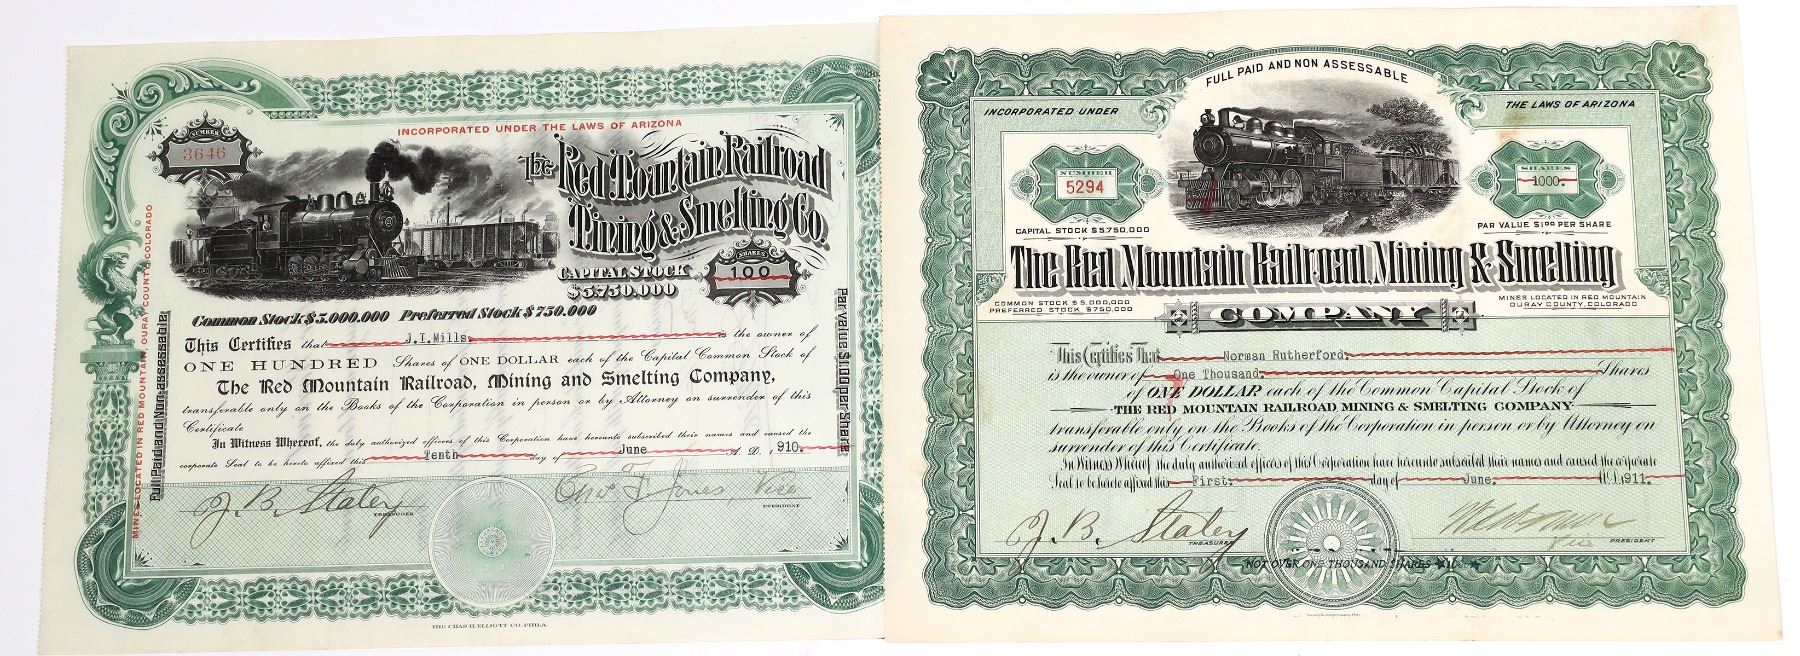 INCORPORATED UNDER THE LAWS OF ARIZONA
NUMBER
3646
The Red Mountain Railroad
Mining & Smelting Co.
CAPITAL STOCK
$5.750.000
SHARES
100
Common Stock $5.000.000 Preferred Stock $750.000
This Certifies that J.I.Mills. is the owner of
ONE HUNDRED Shares of ONE DOLLAR each of the Capital Common Stock of
The Red Mountain Railroad, Mining and Smelting Company,
transferable only on the Books of the Corporation in person or by Attorney on surrender of this
Certificate
In Witness Whereof, the duly authorized officers of this Corporation have hereunto subscribed their names and caused the
corporate Seal to be hereto affixed this Tenth day of June A. D., 910.
J. B. Staley
TREASURER
Chas F. Jones Vice
PRESIDENT
MINES LOCATED IN RED MOUNTAIN, OURAY COUNTY, COLORADO
Full Paid and Non-assessable
Par value $1.00 per share
THE CHAS. H. ELLIOTT CO. PHILA.
FULL PAID AND NON ASSESSABLE
INCORPORATED UNDER
THE LAWS OF ARIZONA
NUMBER
5294
SHARES
1000.
CAPITAL STOCK $5.750,000
PAR VALUE $1.00 PER SHARE
The Red Mountain Railroad, Mining & Smelting
COMMON STOCK $5,000,000
PREFERRED STOCK $750,000
MINES LOCATED IN RED MOUNTAIN
OURAY COUNTY, COLORADO
COMPANY
This Certifies That Norman Rutherford.
is the owner of One Thousand. Shares
of ONE DOLLAR each of the Common Capital Stock of
THE RED MOUNTAIN RAILROAD MINING & SMELTING COMPANY
transferable only on the Books of the Corporation in person or by Attorney on
surrender of this Certificate.
In Witness Whereof the duly authorized officers of this Corporation have hereunto subscribed their names and caused the corporate
Seal to be hereto affixed this First. day of June. A.D. 1911.
J. B. Staley
TREASURER
Vice
PRESIDENT
NOT OVER ONE THOUSAND SHARES